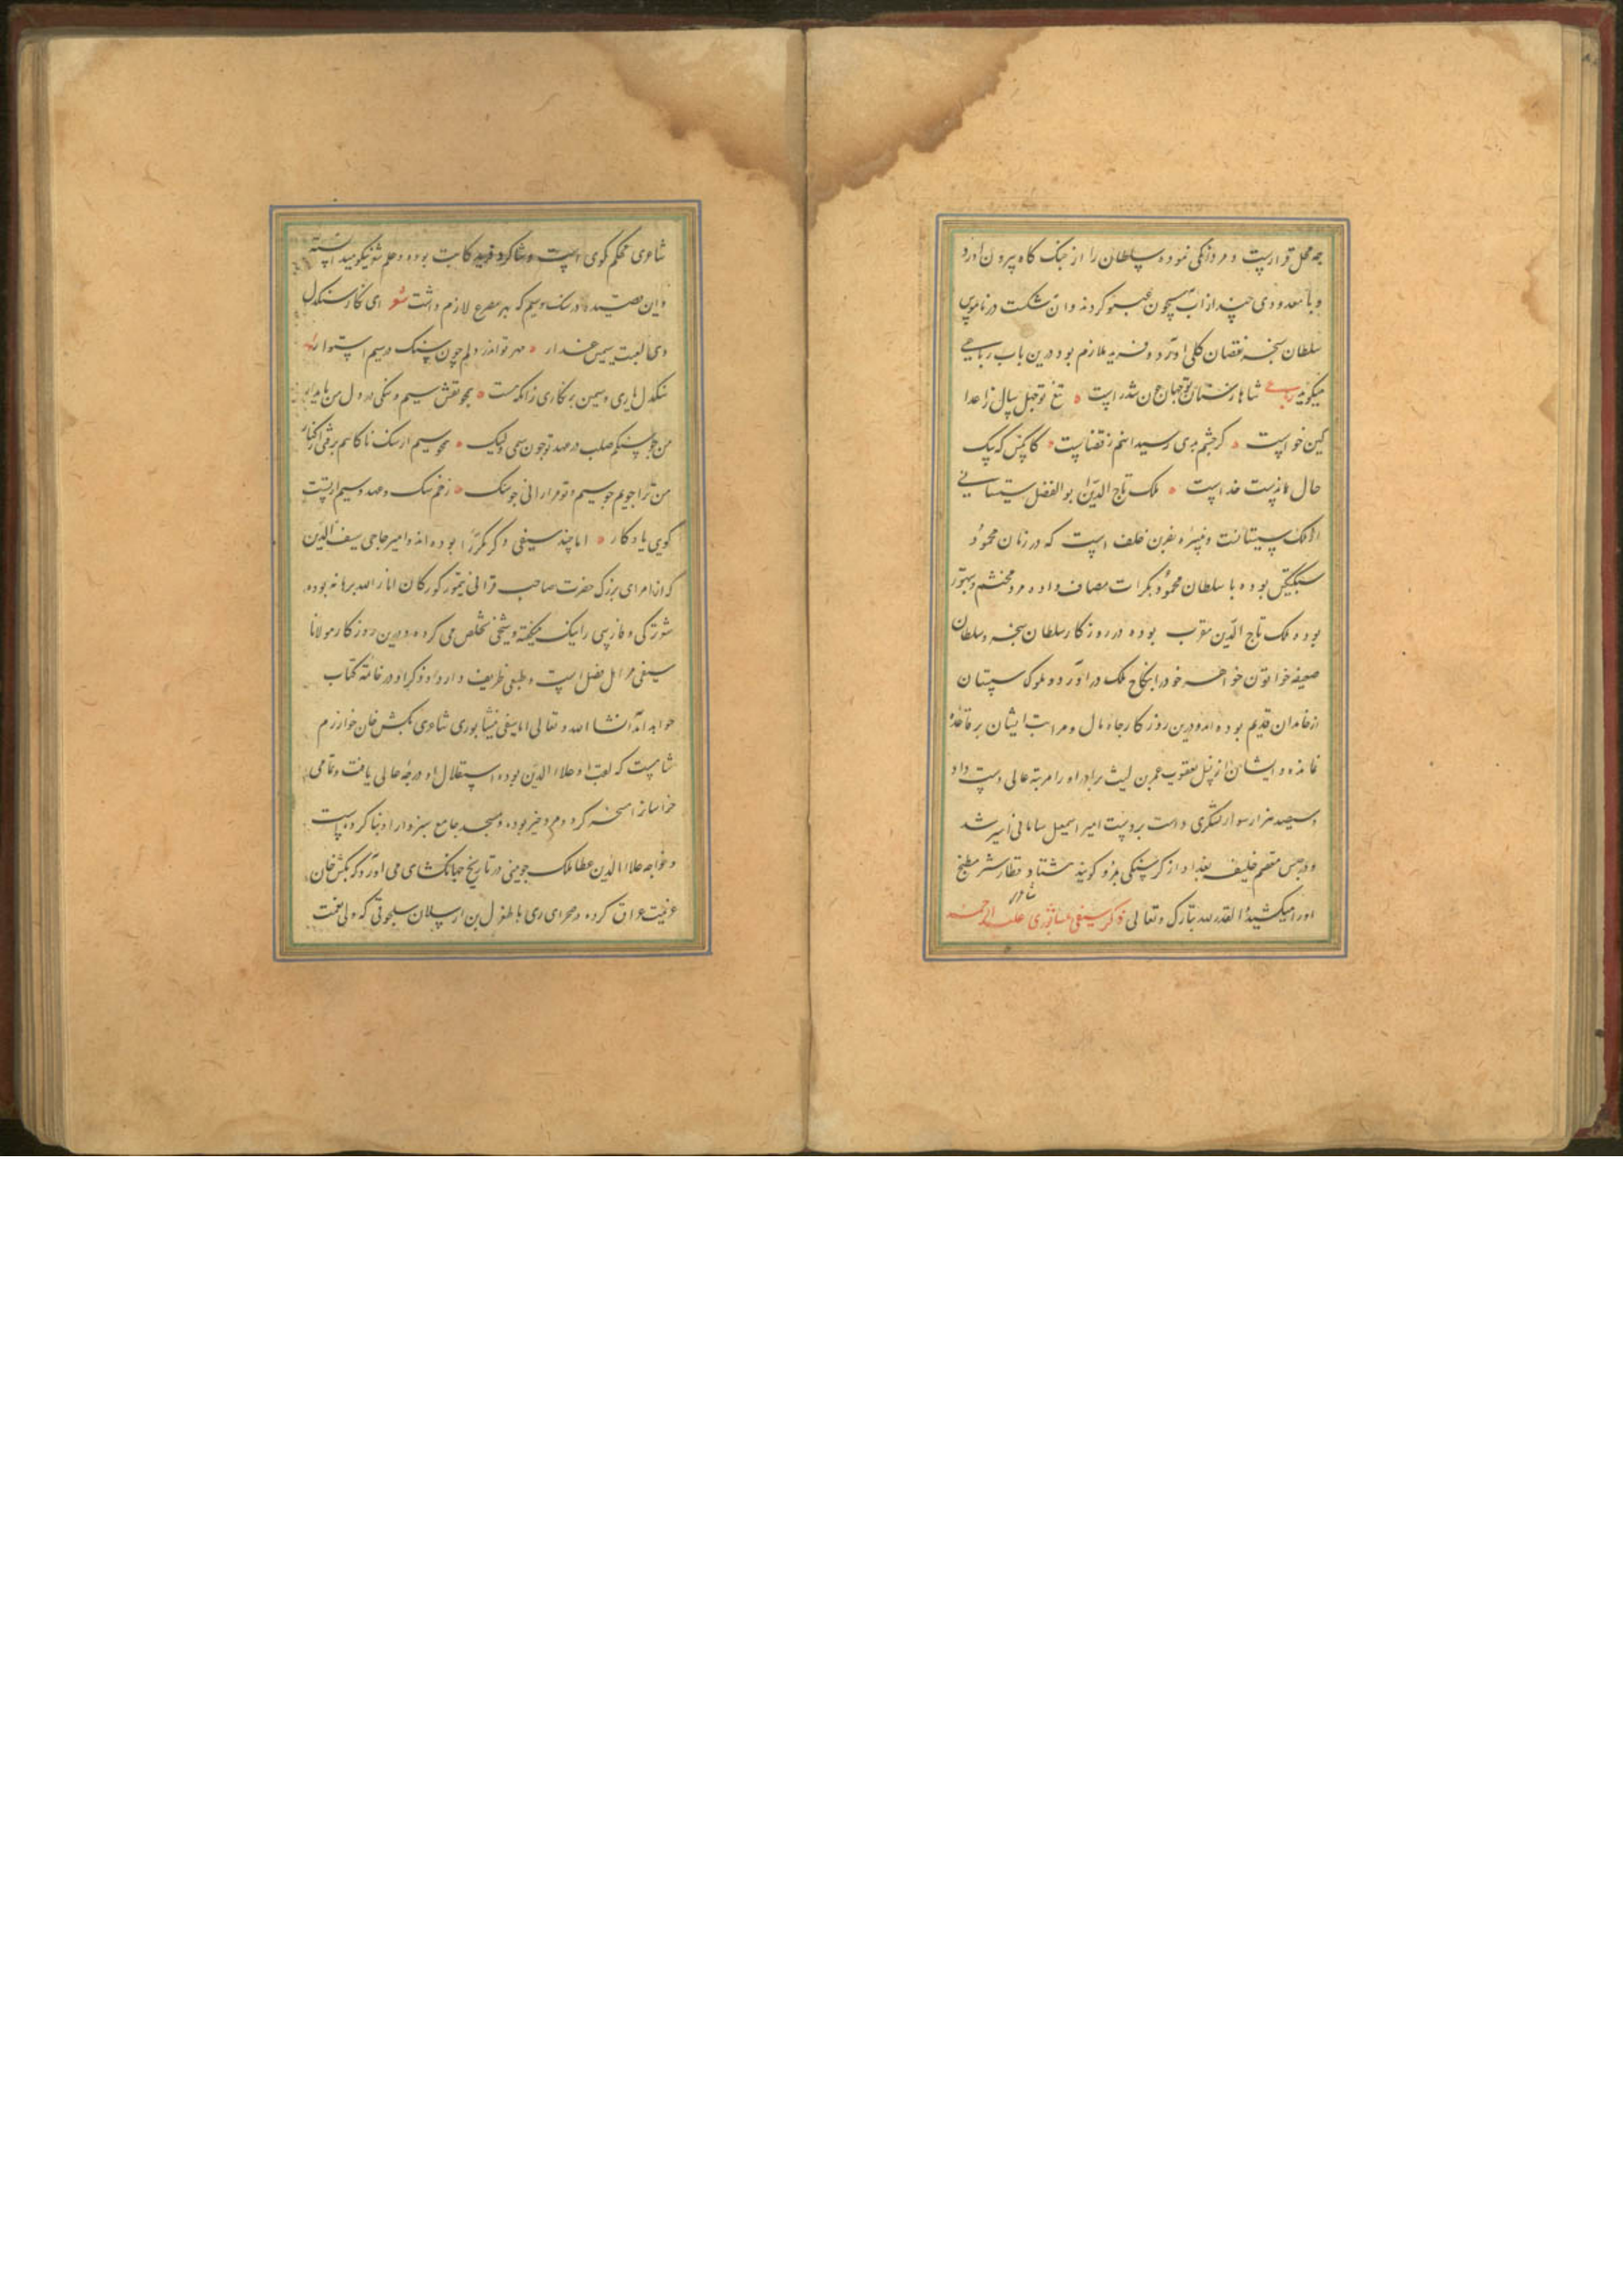 چه محل قرارست و مردانگی نموده سلطان را از جنگ گاه بیرون آورد
و با معدودی چند از آب جیحون عبور کردند و آن شکست در ناموس
سلطان سنجر نقصان کلی آورد و فرید ملازم بود درین باب رباعی
میگوید رباعی شاها ز سنان تو جهان شد راست • تیغ تو چهل سال ز اعدا
کین خواست • گر چشم بدی رسید آنهم ز قضاست • کانکس که بیک
حال بماندست خداست • ملک تاج الدین ابو الفضل سیستانی
الملک سیستانست و نبیره خلف است که در زمان محمود
سبکتکین بوده با سلطان محمود بکرات مصاف داده مرد محتشم و متهور
بوده ملک تاج الدین مقرب بوده در روزکار سلطان سنجر و سلطان
صفیه خواتون خواهر خود را بنکاح ملک در آورد و ملوک سیستان
از خاندان قدیم بوده اند و درین روزکار جاه و مال و مراتب ایشان بر قاعده
نمانده و ایشان از نسل یعقوب عمرو بن لیث برادر او را مرتبه عالی دست داد
و سیصد هزار سوار لشکری داشت بر دست امیر اسمعیل سامانی اسیر شد
و در حبس معتصم خلیفه بغداد از کرسنکی بمرد و کویند هشتاد قطار شتر مطبخ
او را میکشید القدر لله تبارک و تعالی ذکر سیفی نیشابوری علیه الرحمه
شاعری محکم کوی است و شاکرد فرید کاتب بوده و علم شعر نیکو میدانسته
و این قصیده در سنک و سیم که بهر مصرع لازم داشت شعر ای نکار سنکدل
وی لعبت سیمین عذار • مهر تو اندر دلم چون سنک در سیم استوار
سنکدل یاری و سیمین بر نکاری زانکه هست • همچو نقش سیم و سنکی در دل من پایدار
من چو سنکم صلب در عهد تو چون سیمی ولیک • همچو سیم از سنک ناکاهم برفتی از کنار
من ترا جویم چو سیم و تو مرا رانی چو سنک • زخم سنک و عهد و سیم ار تست
کوی یادکار • اما چند سیفی دکر مکررا بوده اند و امیر حاجی سیف الدین
که از امرای بزرک حضرت صاحب قرانی تیمور کورکان انار الله برهانه بوده
شعر ترکی و فارسی را نیک میکفته و سیفی تخلص می کرده و درین روزکار مولانا
سیفی مرد اهل فضل است و طبعی ظریف دارد و ذکر او در خاتمه کتاب
خواهد آمد انشا الله و تعالی اما سیفی نیشابوری شاعری تکش خان خوارزم
شاهست که لقب او علاء الدین بوده استقلال او درجه عالی یافت و تمامی
خراسانرا مسخر کرد و مردی خیر بوده و مسجد جامع سبزوار او بنا کرده است
و خواجه علاء الدین عطا ملک جوینی در تاریخ جهانکشای می آورد که تکش خان
عزیمت عراق کرده در صحرای ری با طغرل بن ارسلان سلجوقی که ولی نعمت